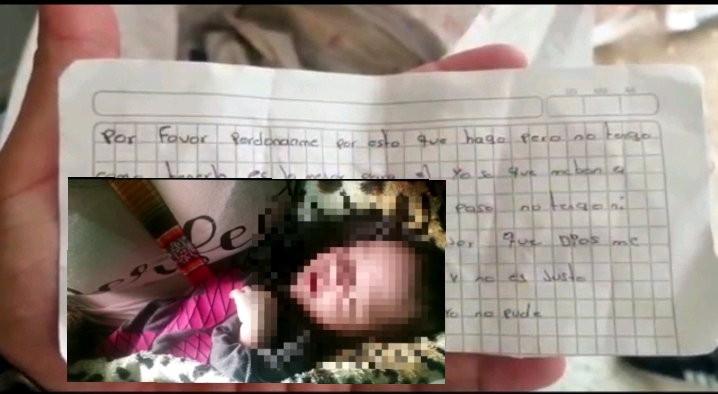 Por Favor Perdonanme por esto que hago pero no tengo
como tenerlo es lo mejor para el yo se que meban a
paso no tengo ni
que Dios me
y no es Justo
no pude